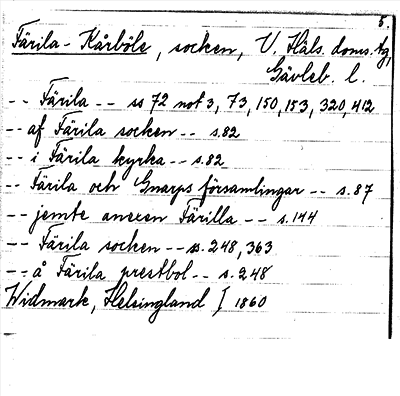 8.
Färila-Kårböle, socken, V. Häls. doms. tg,
Gävleb. l.
-- Färila -- ss 72 not 3, 73, 150, 153, 320, 412
-- af Färila socken -- s. 82
-- i Färila kyrka -- s. 82
-- Färila och Gnarps församlingar -- s. 87
-- jemte anexen Färilla -- s. 144
-- Färila socken -- ss. 248, 363
-- å Färila prestbol -- s. 248
Widmark, Helsingland I 1860